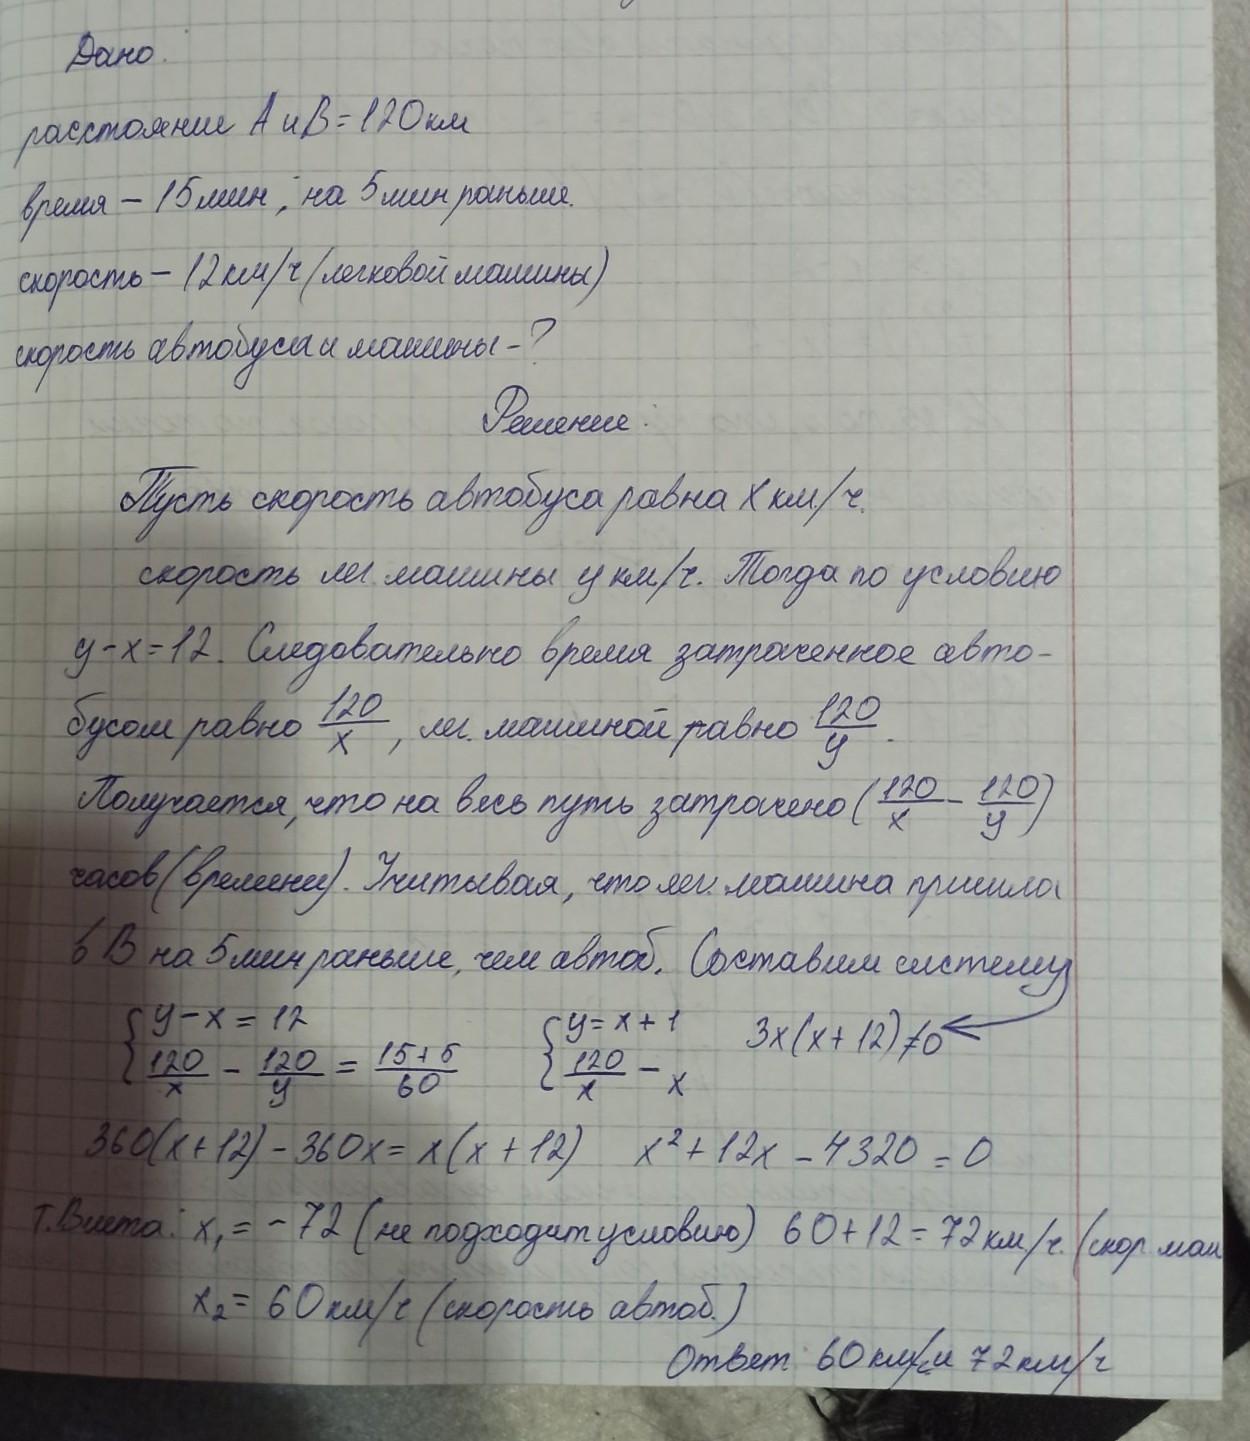 Дано.
расстояние A и B = 120 км
время – 15 мин; на 5 мин раньше.
скорость – 12 км/ч (легковой машины)
скорость автобуса и машины - ?
Решение:
Пусть скорость автобуса равна x км/ч.
скорость лег. машины y км/ч. Тогда по условию
y - x = 12. Следовательно время затраченное авто-
бусом равно 120/x, лег. машиной равно 120/y.
Получается, что на весь путь затрачено (120/x - 120/y)
часов (времени). Учитывая, что лег. машина пришла
в B на 5 мин раньше, чем автоб. Составим систему
{ y - x = 12 { y = x + 1 3x(x + 12) ≠ 0
120/x - 120/y = 15+5/60 120/x - x
360(x + 12) - 360x = x(x + 12) x² + 12x - 4320 = 0
т. Виета: x₁ = - 72 (не подходит условию) 60 + 12 = 72 км/ч. (скор маш
x₂ = 60 км/ч (скорость автоб.)
Ответ: 60 км/ч и 72 км/ч